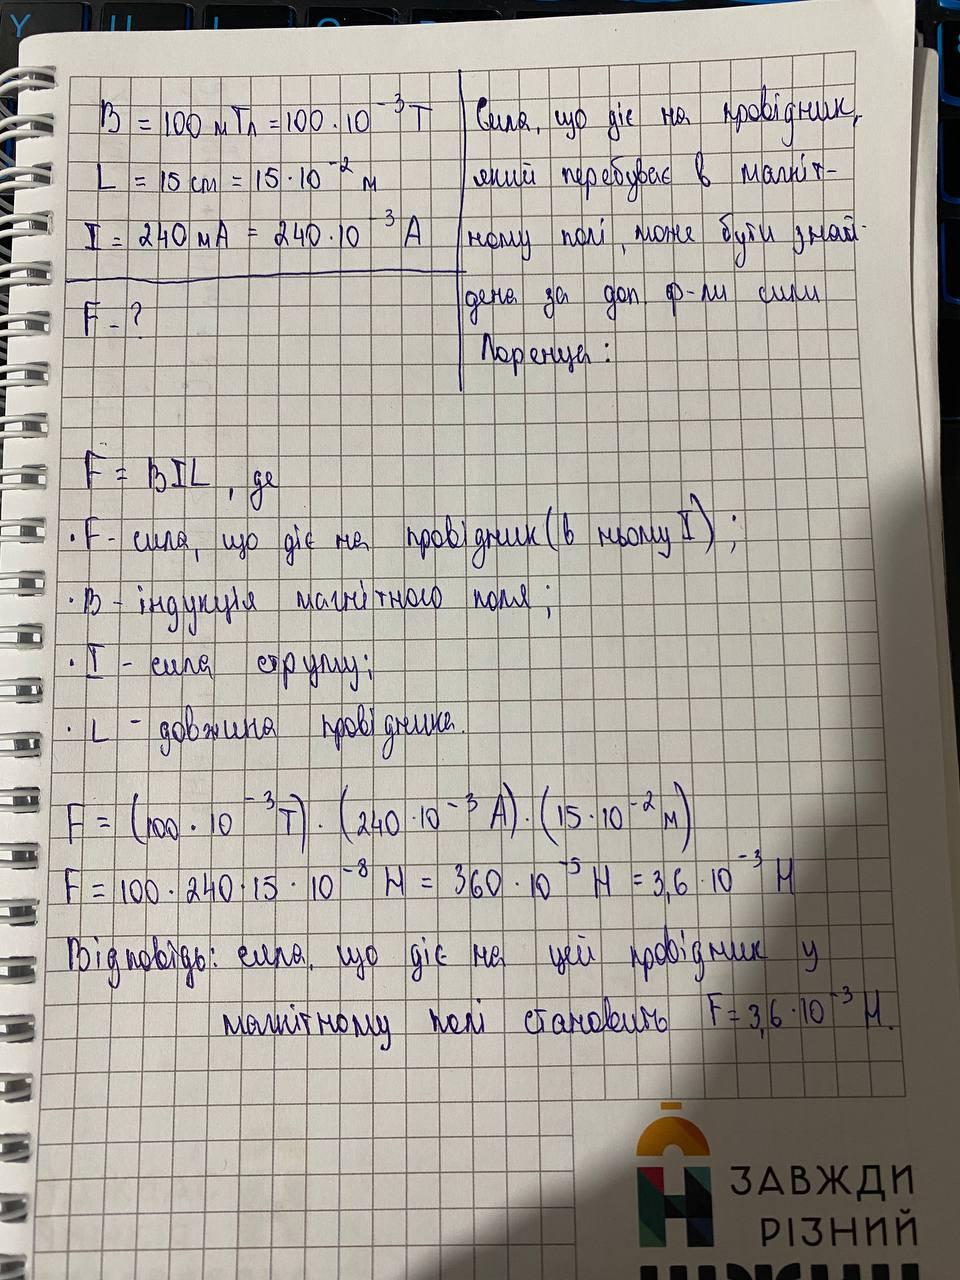 B = 100 мТл = 100·10⁻³ Т
L = 15 см = 15·10⁻² м
I = 240 мА = 240·10⁻³ А
F - ?
Сила, що діє на провідник,
який перебуває в магніт-
ному полі, може бути знай-
дена за доп. ф-ли сили
Лоренца:
F = BIL, де
·F- сила, що діє на провідник (в ньому I);
·B - індукція магнітного поля;
·I - сила струму;
·L - довжина провідника.
F = (100·10⁻³ Т)·(240·10⁻³ А)·(15·10⁻² м)
F = 100·240·15·10⁻⁸ Н = 360·10⁻⁵ Н = 3,6·10⁻³ Н
Відповідь: сила, що діє на цей провідник у
магнітному полі становить F = 3,6·10⁻³ Н.
ЗАВЖДИ
РІЗНИЙ